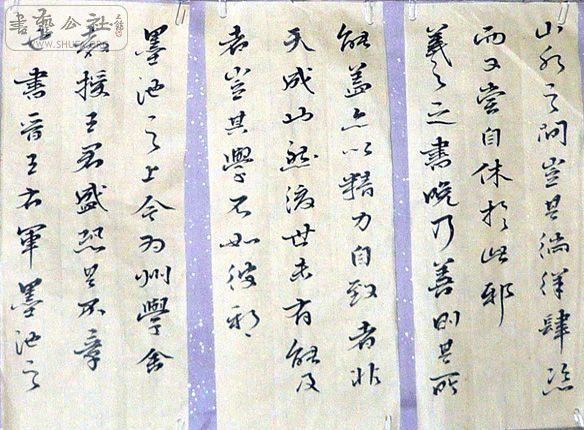 山水之間豈其徜徉肆恣
而又嘗自休於此邪
羲之之書晚乃善則其所
能蓋亦以精力自致者非
天成也然後世未有能及
者豈其學不如彼邪
墨池之上今為州學舍
教授王君盛恐其不章
也書晉王右軍墨池之
書藝公社